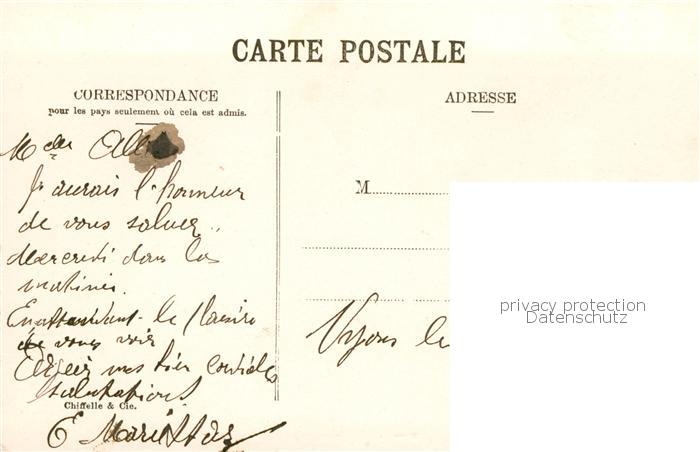 CARTE POSTALE
CORRESPONDANCE
pour les pays seulement où cela est admis.
ADRESSE
J'aurais l'honneur
de vous saluer..
Mercredi dans la
matinée.
M
En attendant le plaisir
de vous voir
mes bien cordiales
salutations
Chiffelle & Cie.
privacy protection
Datenschutz